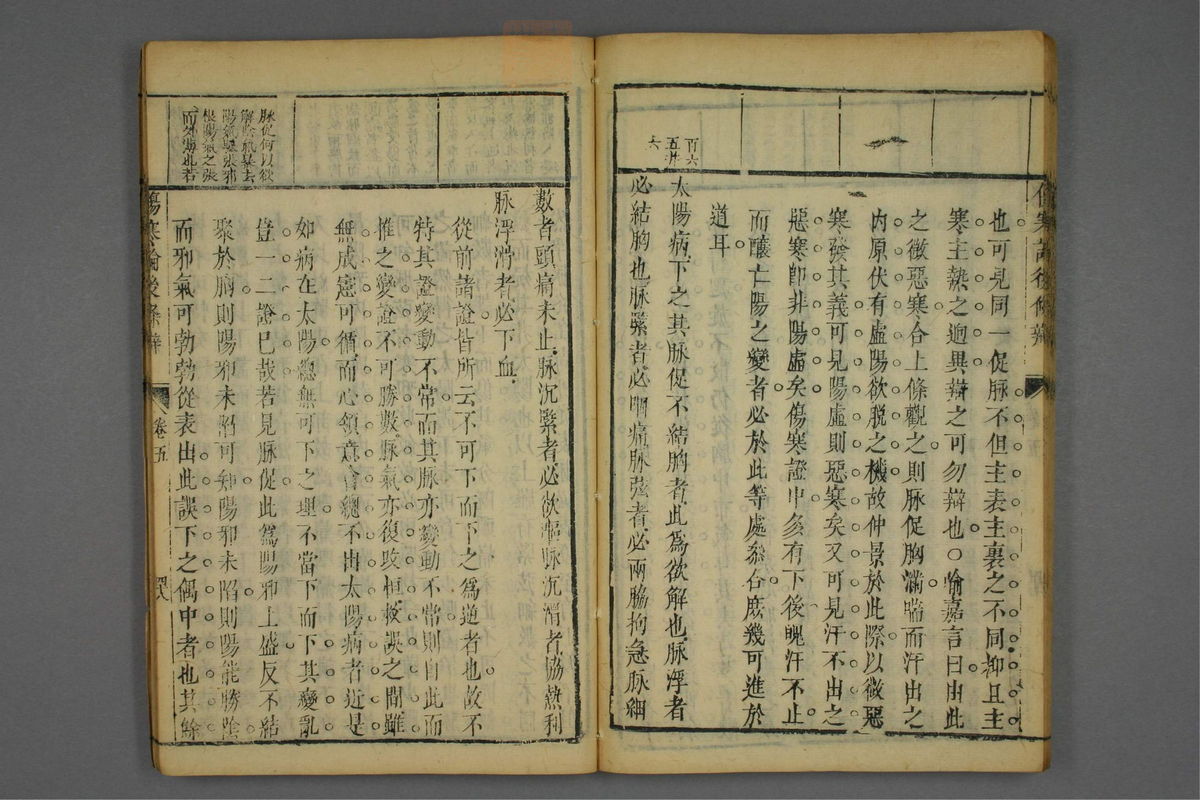 也可見同一促脈不但主表主裏之不同抑且主
寒主熱之迥異辯之可勿辯也○喻嘉言曰由此
之微惡寒合上條觀之則脈促胸滿喘而汗出之
內原伏有虛陽欲脫之機故仲景於此際以微惡
寒發其義可見陽虛則惡寒矣又可見汗不出之
惡寒卽非陽虛矣傷寒證中多有下後魄汗不止
而釀亡陽之變者必於此等處參合庶幾可進於
道耳
百六
五
六
太陽病下之其脈促不結胸者此爲欲解也脈浮者
必結胸也脈緊者必咽痛脈弦者必兩脇拘急脈細
數者頭痛未止脈沉緊者必欲嘔脈沉滑者協熱利
脈浮滑者必下血
從前諸證皆所云不可下而下之爲逆者也故不
特其證變動不常而其脈亦變動不常則自此而
惟之變證不可勝數脈氣亦復跂桓救誤之間雖
無成憲可循而心領意會總不出太陽病者近是
如病在太陽總無可下之理不當下而下其變亂
豈一二證已哉若見脈促此爲陽邪上盛反不結
聚於胸則陽邪未陷可知陽邪未陷則陽能勝陰
而邪氣可勃勃從表出此誤下之偶中者也其餘
脈促何以欲
解陰氣暴去
陽氣驟張邪
根陽氣之張
而外薄也若
傷寒論後條辨
卷五